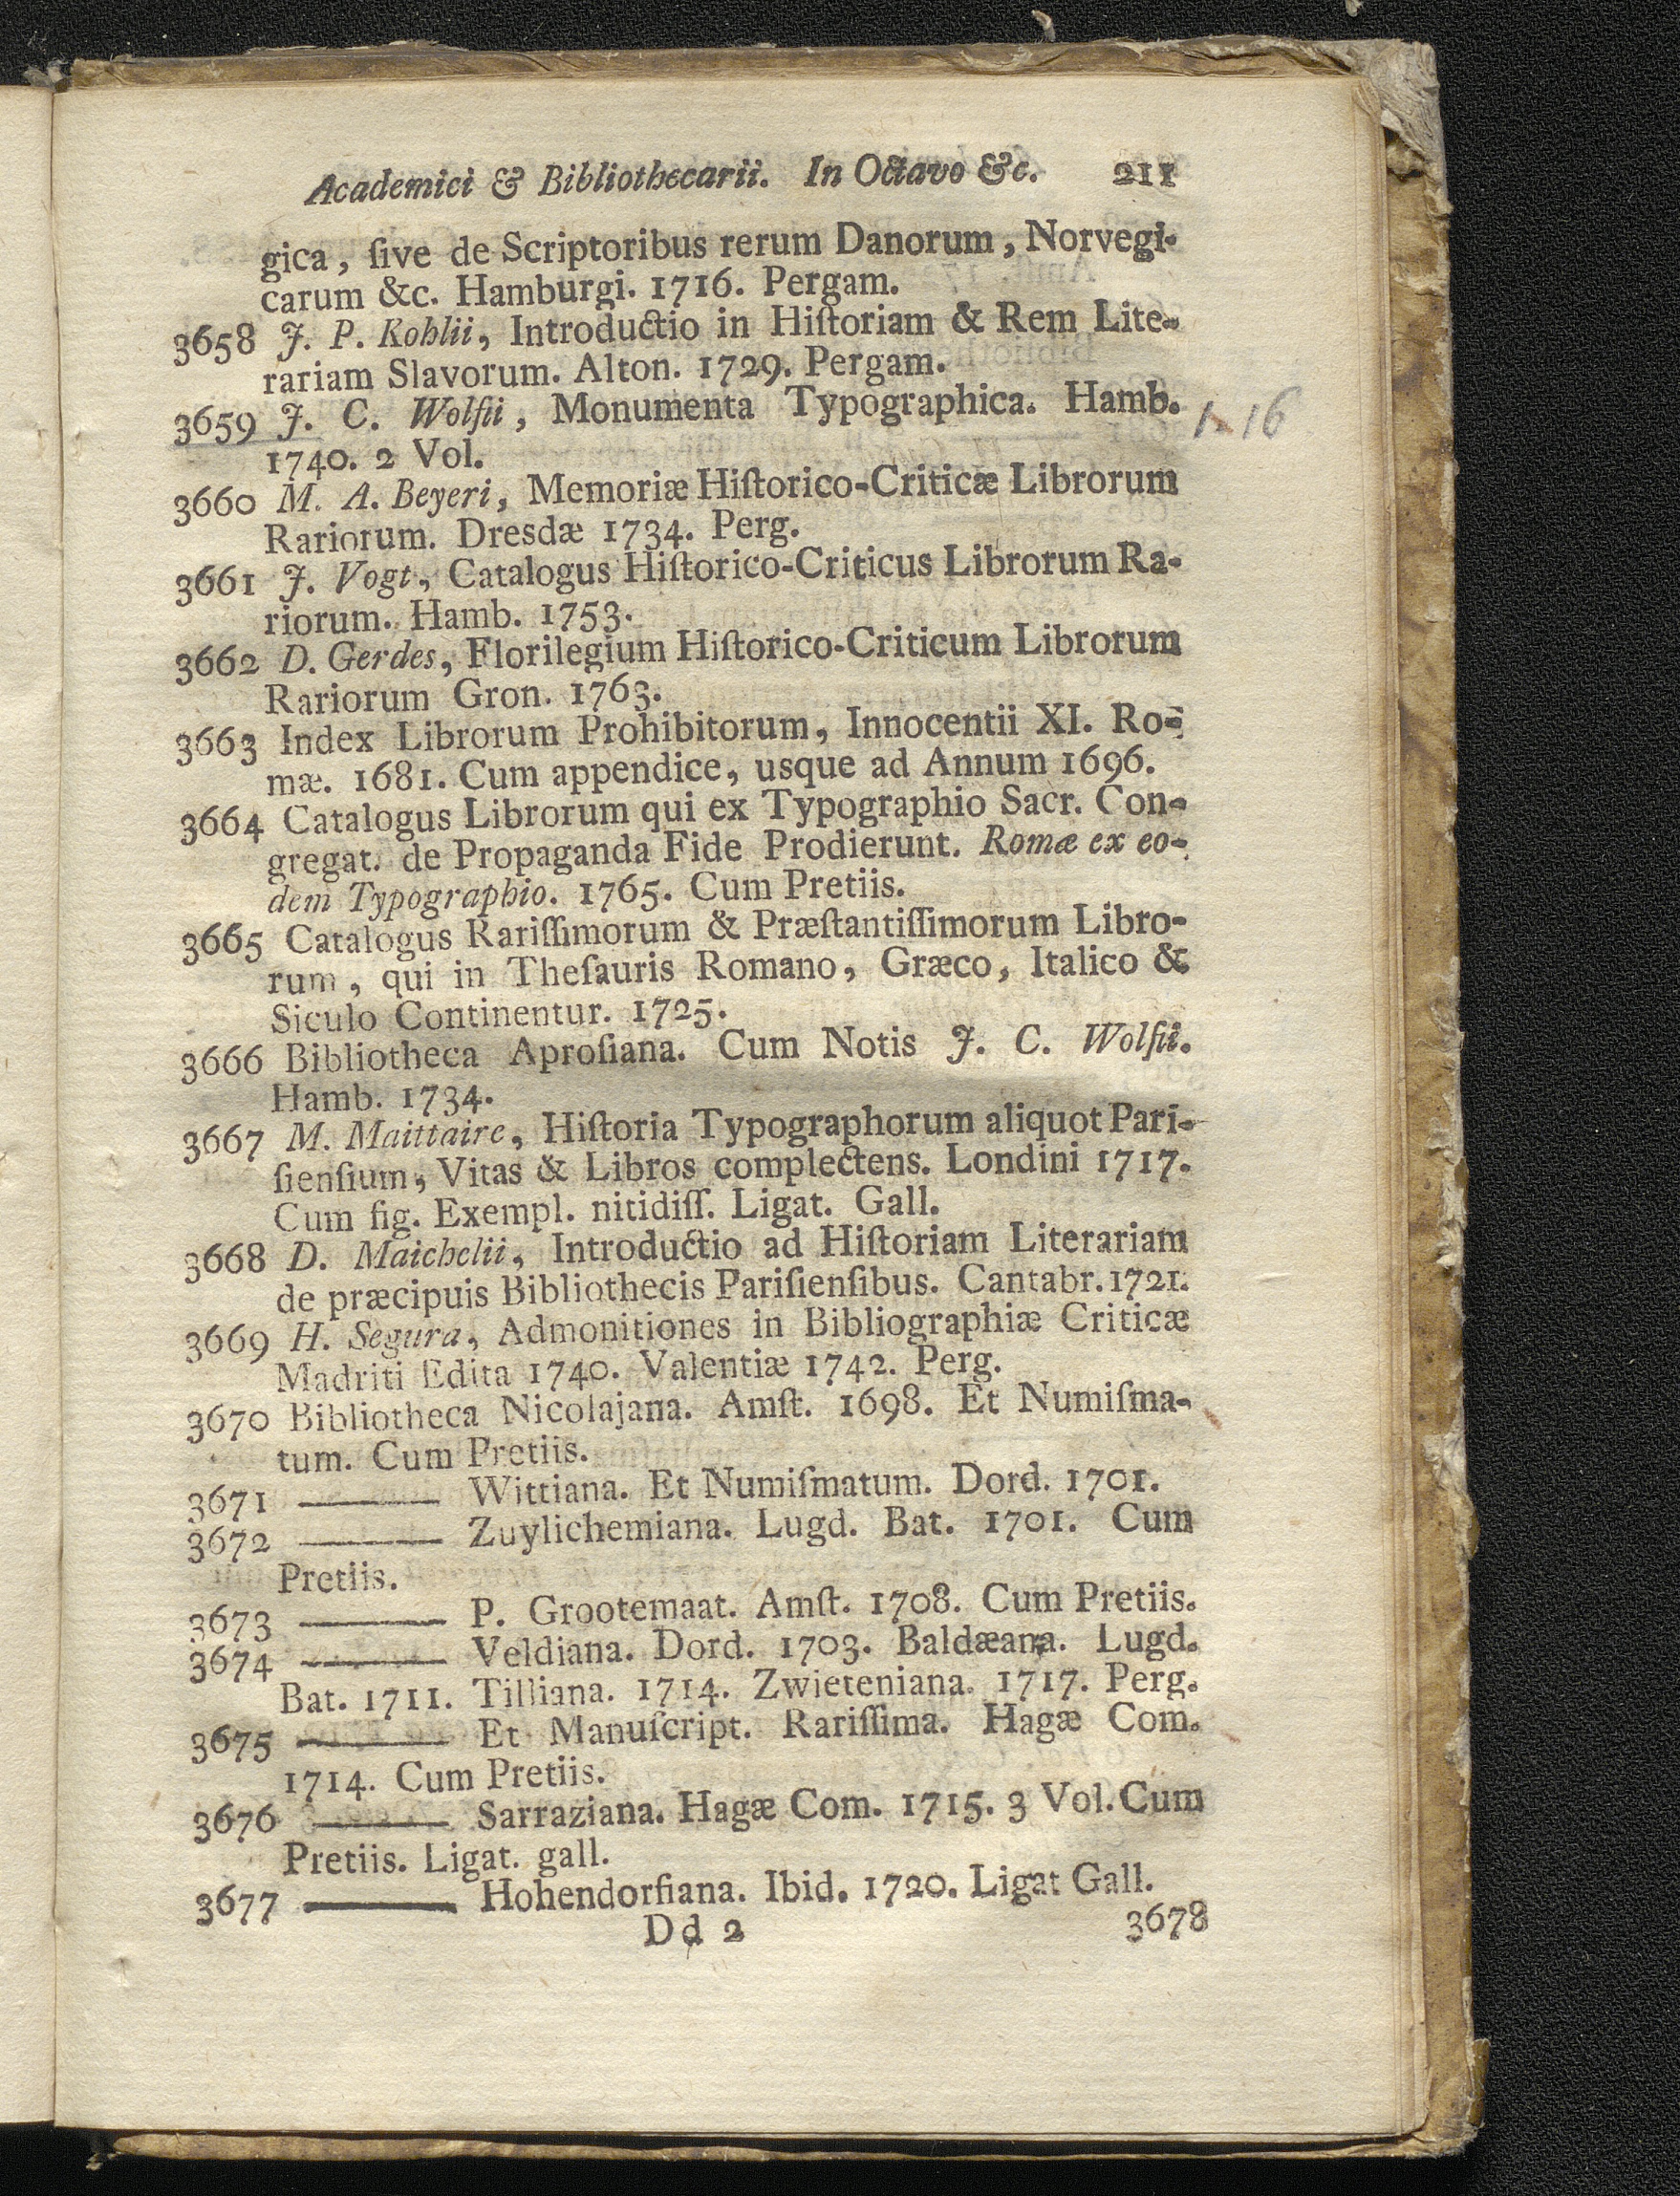 Academici & Bibliothecarii. In Octavo &c. 211
gica, ſive de Scriptoribus rerum Danorum, Norvegi-
carum &c. Hamburgi. 1716. Pergam.
3658 J. P. Kohlii, Introductio in Hiſtoriam & Rem Lite-
rariam Slavorum. Alton. 1729. Pergam.
3659 J. C. Wolfii, Monumenta Typographica. Hamb. 1.16
1740. 2 Vol.
3660 M. A. Beyeri, Memoriæ Hiſtorico-Criticæ Librorum
Rariorum. Dresdæ 1734. Perg.
3661 J. Vogt, Catalogus Hiſtorico-Criticus Librorum Ra-
riorum. Hamb. 1753.
3662 D. Gerdes, Florilegium Hiſtorico-Criticum Librorum
Rariorum Gron. 1763.
3663 Index Librorum Prohibitorum, Innocentii XI. Ro-
mæ. 1681. Cum appendice, usque ad Annum 1696.
3664 Catalogus Librorum qui ex Typographio Sacr. Con-
gregat. de Propaganda Fide Prodierunt. Romæ ex eo-
dem Typographio. 1765. Cum Pretiis.
3665 Catalogus Rariſſimorum & Præſtantiſſimorum Libro-
rum, qui in Theſauris Romano, Græco, Italico &
Siculo Continentur. 1725.
3666 Bibliotheca Aproſiana. Cum Notis J. C. Wolfii.
Hamb. 1734.
3667 M. Maittaire, Hiſtoria Typographorum aliquot Pari-
ſienſium, Vitas & Libros complectens. Londini 1717.
Cum fig. Exempl. nitidiſſ. Ligat. Gall.
3668 D. Maichelii, Introductio ad Hiſtoriam Literariam
de præcipuis Bibliothecis Pariſienſibus. Cantabr. 1721.
3669 H. Segura, Admonitiones in Bibliographiæ Criticæ
Madriti Edita 1740. Valentiæ 1742. Perg.
3670 Bibliotheca Nicolajana. Amſt. 1698. Et Numiſma-
tum. Cum Pretiis.
3671 ——— Wittiana. Et Numiſmatum. Dord. 1701.
3672 ——— Zuylichemiana. Lugd. Bat. 1701. Cum
Pretiis.
3673 ——— P. Grootemaat. Amſt. 1708. Cum Pretiis.
3674 ——— Veldiana. Dord. 1703. Baldæana. Lugd.
Bat. 1711. Tilliana. 1714. Zwieteniana. 1717. Perg.
3675 ——— Et Manuſcript. Rariſſima. Hagæ Com.
1714. Cum Pretiis.
3676 ——— Sarraziana. Hagæ Com. 1715. 3 Vol. Cum
Pretiis. Ligat. gall.
3677 ——— Hohendorfiana. Ibid. 1720. Ligat Gall.
Dd 2 3678